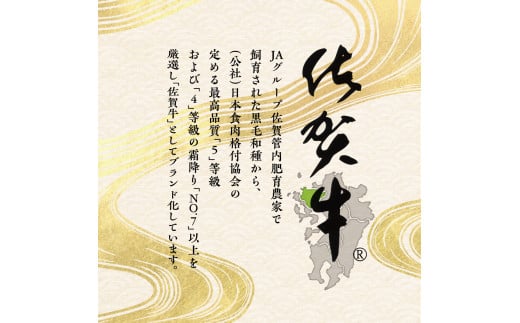 佐賀牛®
JAグループ佐賀管内肥育農家で
飼育された黒毛和種から、
(公社)日本食肉格付協会の
定める最高品質「5」等級
および「4」等級の霜降り「NO.7」以上を
厳選し「佐賀牛」としてブランド化しています。